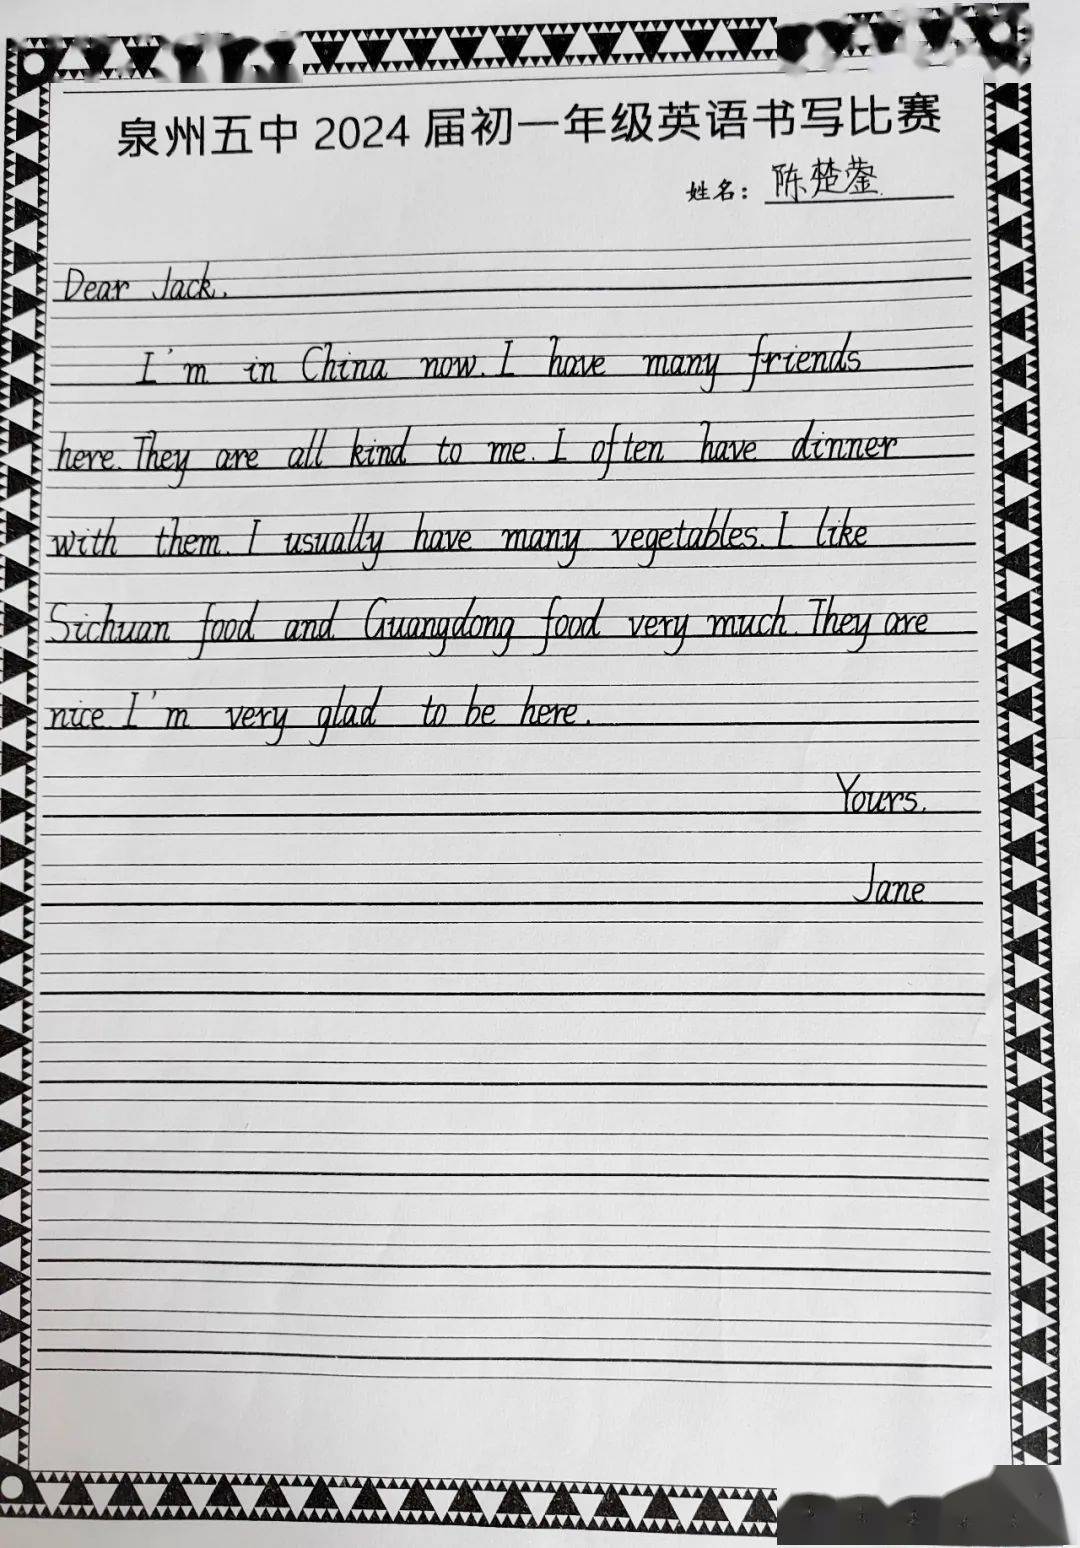 泉州五中 2024 届初一年级英语书写比赛
姓名: 陈楚蓥
Dear Jack,
I'm in China now. I have many friends
here. They are all kind to me. I often have dinner
with them. I usually have many vegetables. I like
Sichuan food and Guangdong food very much. They are
nice. I'm very glad to be here.
Yours,
Jane